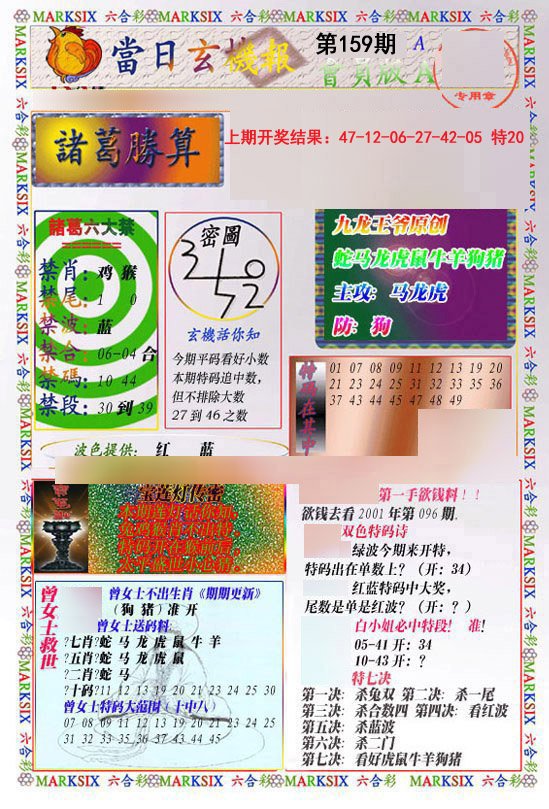 MARKSIX 六合彩 MARKSIX 六合彩 MARKSIX 六合彩 MARKSIX 六合彩
當日玄機報
第159期
A
會員版 A
专用章
諸葛勝算
上期开奖结果：47-12-06-27-42-05 特20
諸葛六大禁
禁肖：鸡 猴
禁尾：1 0
禁波：蓝
禁合：06-04 合
禁碼：10 44
禁段：30 到 39
密圖
玄機話你知
今期平码看好小数
本期特码追中数，
但不排除大数
27 到 46 之数
波色提供： 红 蓝
九龙王爷原创
蛇马龙虎鼠牛羊狗猪
主攻：马龙虎
防：狗
特码在其中
01 07 08 09 11 12 13 19 20
21 23 24 25 31 32 33 35 36
37 43 44 45 47 48 49
宝莲灯传密
曾女士救世
曾女士不出生肖《期期更新》
（狗 猪）准 开
曾女士送码料
?七肖?蛇 马 龙 虎 鼠 牛 羊
?五肖?蛇 马 龙 虎 鼠
?二肖?蛇 马
?十码?11 12 13 19 20 21 23 24 25 30
曾女士特码大范围（十中八）
07 08 09 11 12 13 19 20 21 23 24 25
31 32 33 35 36 37 43 44 45
第一手欲钱料！！
欲钱去看 2001 年第 096 期.
双色特码诗
绿波今期来开特，
特码出在单数上？（开：34）
红蓝特码中大奖，
尾数是单是红波？（开：？）
白小姐必中特段！ 准！
05-41 开：34
10-43 开：？
特七决
第一决：杀兔双 第二决：杀一尾
第三决：杀合数四 第四决：看红波
第五决：杀蓝波
第六决：杀二门
第七决：看好虎鼠牛羊狗猪
MARKSIX 六合彩 MARKSIX 六合彩 MARKSIX 六合彩 MARKSIX 六合彩